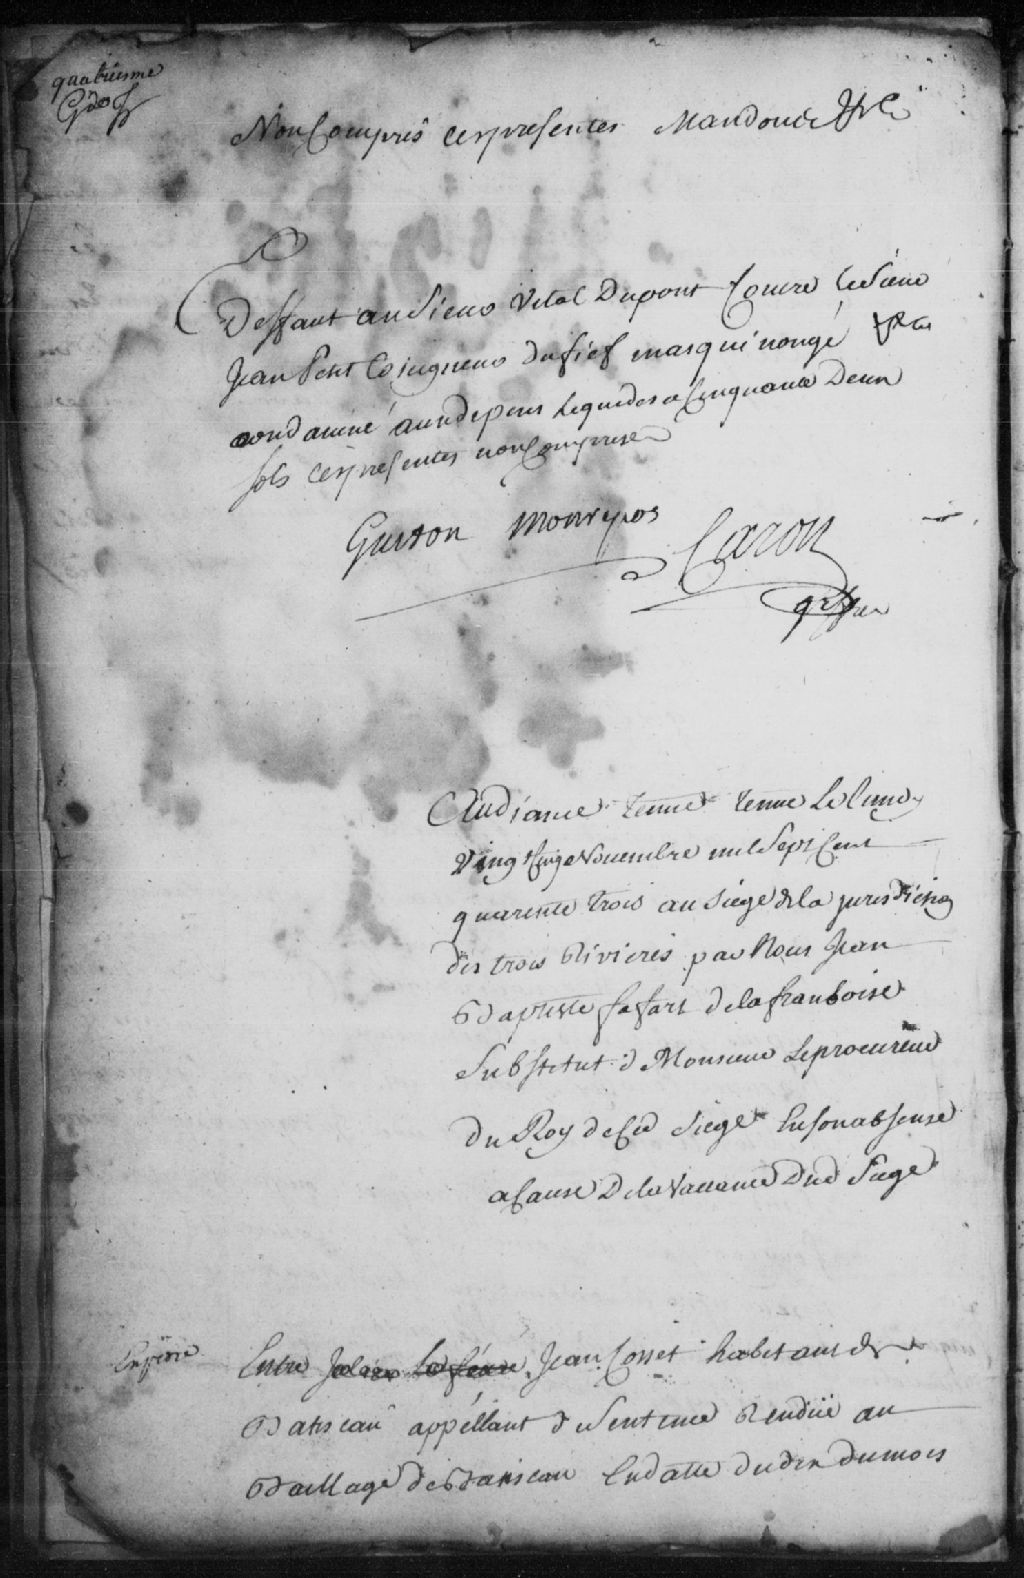 quatriesme
Non Compris ces presentes Mandons &c
Deffaut au Sieur Vital Dupont Contre le Sieur
Jean Petit Coseigneur du fief masquinongé
condamné aux depens liquidés a Cinquante Deux
sols ces presentes non Comprises
Guiton Monrepos Caron
greffier
Audiance tenue tenue Le lundy
vingt Cinq Novembre mil Sept Cent
quarente trois au Siege de la jurisdiction
des trois Rivieres par Nous Jean
Baptiste fafart de la framboise
Substitut de Monsieur Le procureur
du Roy de Ced Siege En son absense
a Cause De la Vacance Dud Siege
Entre Jean Cosset habitant de
Batiscan appéllant de Sentence Rendüe au
Baillage de Batiscan En datte du dix du mois